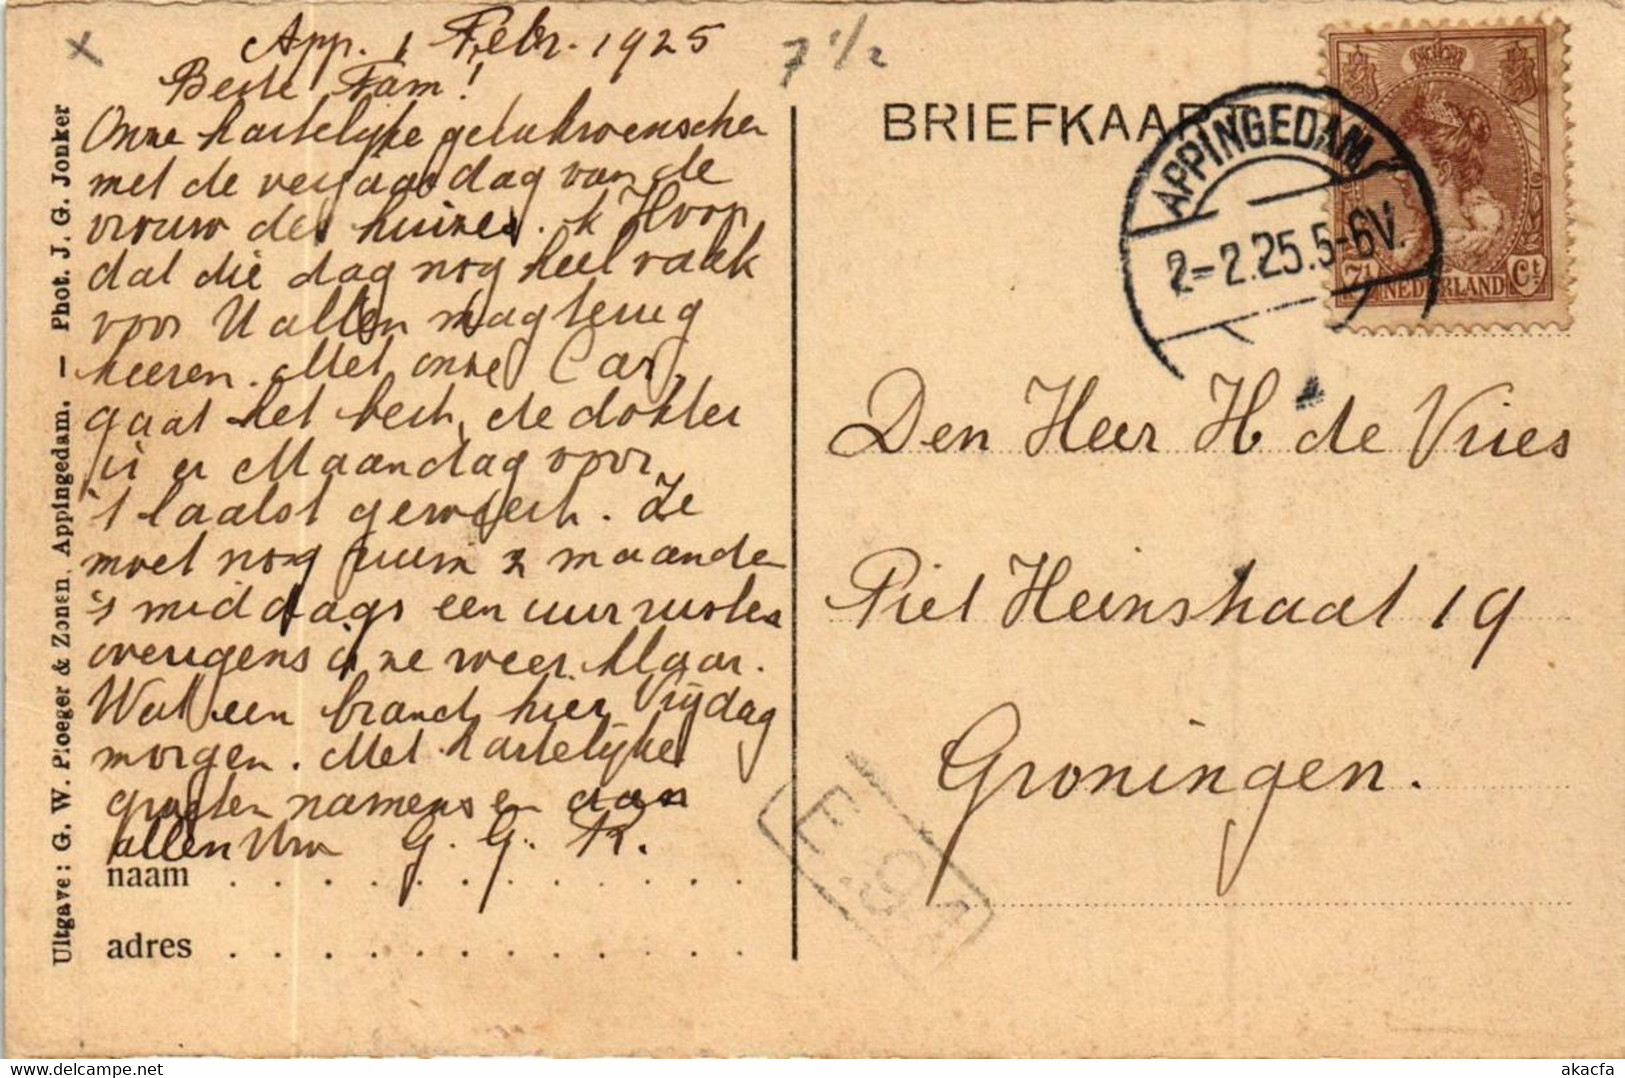 App. 1 Febr. 1925
Beste Fam!
Onze hartelijke gelukwenschen
met de verjaardag van de
vrouw des huizes. k Hoop
dat die dag nog heel vaak
voor U allen mag terug
keeren. Met onze Car.
gaat het best, de dokter
is er Maandag voor
't laatst geweest. Ze
moet nog ruim 2 maande
's middags een uur rusten
overigens is ze weer klaar.
Wat een brand hier Vrijdag
morgen. Met hartelijke
groeten namens en aan
allen Uw G. G. R.
naam
adres
Uitgave: G. W. Ploeger & Zonen, Appingedam. — Phot. J. G. Jonker
7 1/2
BRIEFKAART
APPINGEDAM
2-2.25.5-6V.
7½ NEDERLAND Ct
Den Heer H de Vries
Piet Heinstraat 19
Groningen.
akacfa